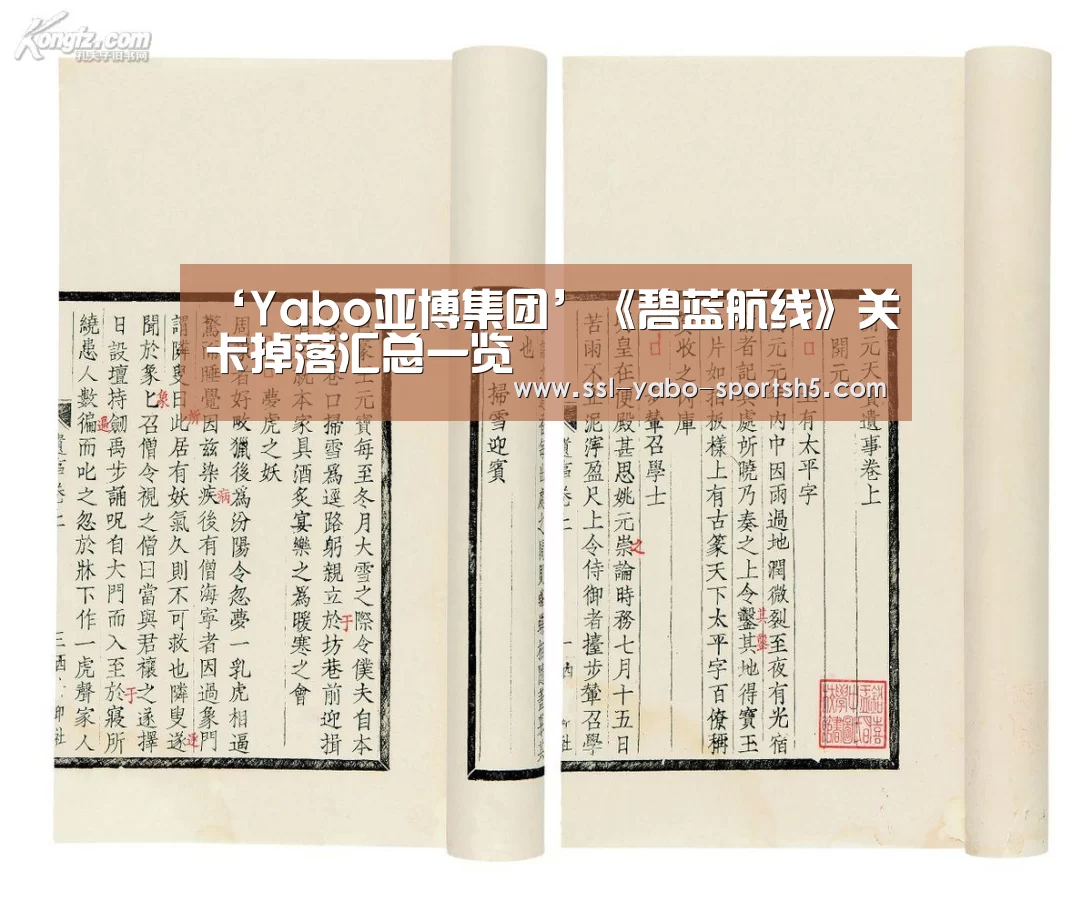 Kongfz.com
孔夫子旧书网
‘Yabo亚博集团’《碧蓝航线》关
卡掉落汇总一览
www.ssl-yabo-sportsh5.com
元天寶遺事卷上
開元
上有太平字
元元年內中因雨過地潤微裂至夜有光宿
者記其處所曉乃奏之上令鑿其地得寶玉
片如拍板樣上有古篆天下太平字百僚稱
收之內庫
輦召學士
皇在便殿甚思姚元崇論時務七月十五日
苦雨不止泥濘盈尺上令侍御者擡步輦召學
也
掃雪迎賓
王元寶每至冬月大雪之際令僕夫自本
家坊巷口掃雪爲逕路躬親立於坊巷前迎揖
就本家具酒炙宴樂之爲暖寒之會
夢虎之妖
周象者好畋獵後爲汾陽令忽夢一乳虎相逼
驚而睡覺因兹染疾後有僧海寧者因過象門
謂隣叟曰此居有妖氣久則不可救也隣叟遂
聞於象匕召僧令視之僧曰當與君禳之遂擇
日設壇持劒禹步誦呪自大門而入至於寢所
繞患人數徧而叱之忽於牀下作一虎聲家人